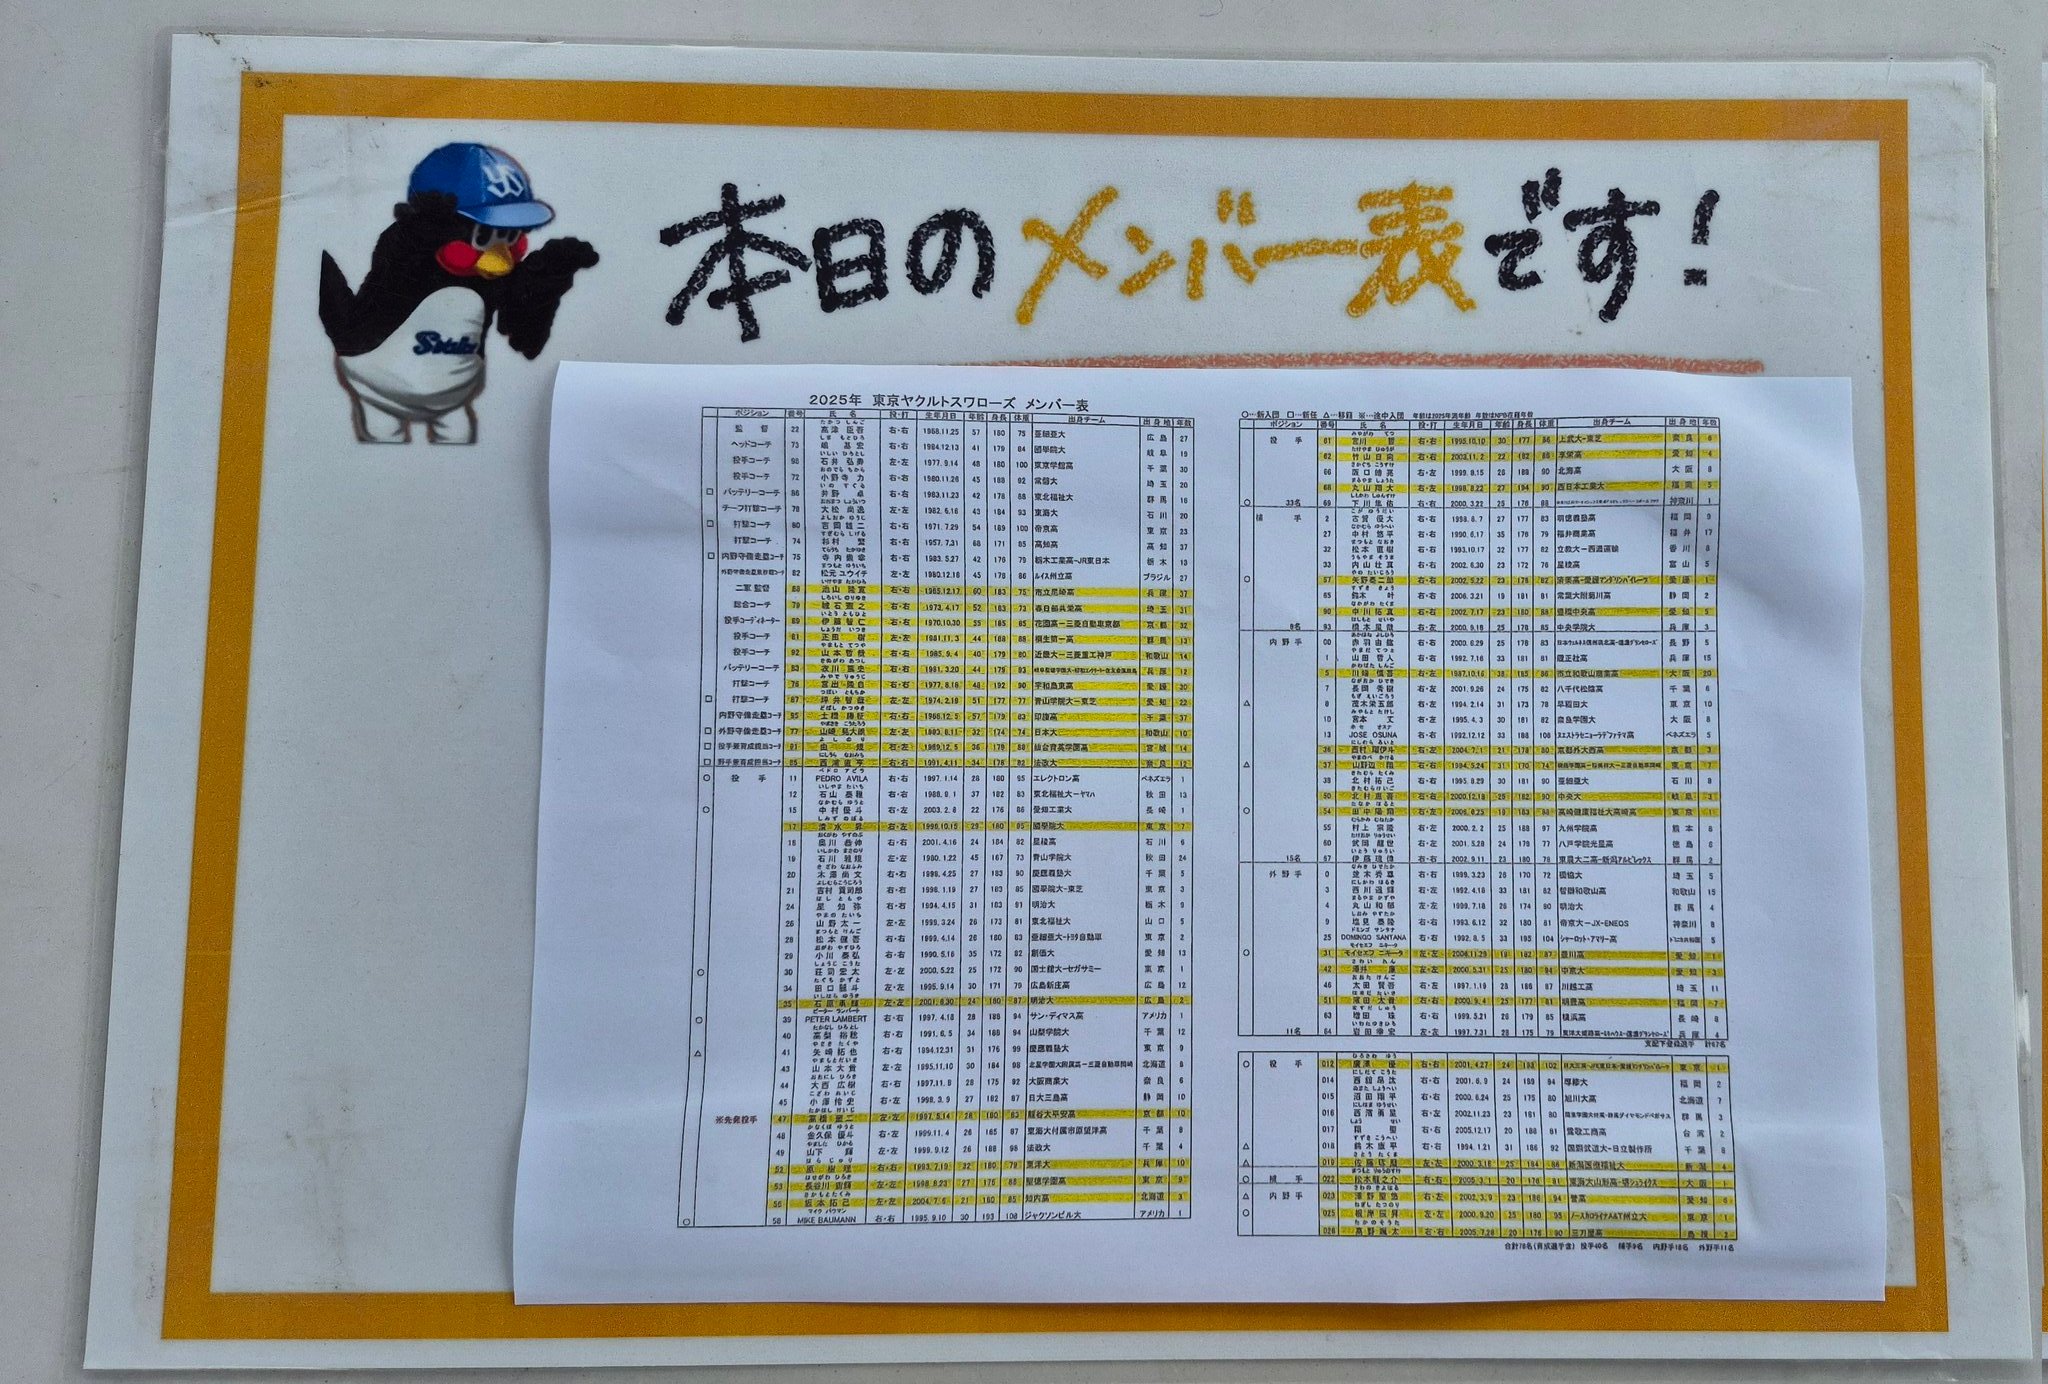 YS
Swallows
本日のメンバー表です!
2025年 東京ヤクルトスワローズ メンバー表
ポジション 番号 氏名 投・打 生年月日 年齢 身長 体重 出身チーム 出身地 年数
監督 22 高津 臣吾 右・右 1968.11.25 57 180 75 亜細亜大 広島 27
ヘッドコーチ 73 嶋 基宏 右・右 1984.12.13 41 179 84 國學院大 岐阜 19
投手コーチ 98 石井 弘寿 左・左 1977.9.14 48 180 100 東京学館高 千葉 30
投手コーチ 72 小野寺 力 右・右 1980.11.26 45 188 92 常磐大 埼玉 20
□ バッテリーコーチ 86 井野 卓 右・右 1983.11.23 42 178 86 東北福祉大 群馬 16
チーフ打撃コーチ 78 大松 尚逸 右・左 1982.6.16 43 184 93 東海大 石川 20
□ 打撃コーチ 80 吉岡 雄二 右・右 1971.7.29 54 189 100 帝京高 東京 23
打撃コーチ 74 杉村 繁 右・右 1957.7.31 68 171 85 高知高 高知 37
□ 内野守備走塁コーチ 75
82 松元 ユウイチ 左・左 1980.12.18 45 178 86 ルイス州立高 ブラジル 27
二軍監督 88 池山 隆寛 右・右 1965.12.17 60 183 75 市立尼崎高 兵庫 37
総合コーチ 79 城石 憲之 右・右 1973.4.17 52 183 73 春日部共栄高 埼玉 31
投手コーディネーター 89 伊藤 智仁 右・右 1970.10.30 55 185 85 花園高-三菱自動車京都 京都 32
投手コーチ 81 正田 樹 左・左 1981.11.3 44 188 88 桐生第一高 群馬 13
投手コーチ 92 山本 哲哉 右・右 1985.9.4 40 179 80 近畿大-三菱重工神戸 和歌山 14
バッテリーコーチ 83 衣川 篤史 右・右 1981.3.20 44 179 93 兵庫 12
打撃コーチ 76 宮出 隆自 右・右 1977.8.18 48 192 90 宇和島東高 愛媛 30
□ 打撃コーチ 87 坪井 智哉 左・左 1974.2.19 51 177 77 青山学院大-東芝
内野守備走塁コーチ 95 土橋 勝征 右・右 1968.12.5 57 179 83 印旛高 千葉 37
□ 外野守備走塁コーチ 77 山崎 晃大朗 右・左 1993.8.11 32 174 74 日本大 和歌山 10
□ 投手兼育成担当コーチ 91 由規 右・左 1989.12.5 36 179 88 仙台育英学園高 宮城 14
□ 野手兼育成担当コーチ 85 西浦 直亨 右・右 1991.4.11 34 178 82 法政大 奈良 12
○ 投手 11 PEDRO AVILA 右・右 1997.1.14 28 180 95 エレクトロン高 ベネズエラ 1
12 石山 泰稚 右・右 1988.9.1 37 182 83 東北福祉大-ヤマハ 秋田 13
○ 15 中村 優斗 右・左 2003.2.8 22 176 86 愛知工業大 長崎 1
17 清水 昇 右・左 1996.10.15 29 180 85 國學院大 東京 7
18 奥川 恭伸 右・右 2001.4.16 24 184 82 星稜高 石川 6
19 石川 雅規 左・左 1980.1.22 45 167 73 青山学院大 秋田 24
20 木澤 尚文 右・右 1998.4.25 27 183 90 慶應義塾大 千葉 5
21 吉村 貢司郎 右・右 1998.1.19 27 183 85 國學院大-東芝 東京 3
24 星 知弥 右・右 1994.4.15 31 183 91 明治大 栃木 9
26 山野 太一 左・左 1999.3.24 26 173 81 東北福祉大 山口 5
28 松本 健吾 右・右 1999.4.14 26 180 83 亜細亜大-トヨタ自動車 東京 2
29 小川 泰弘 右・右 1990.5.16 35 172 82 創価大 愛知 13
○ 30 荘司 宏太 左・左 2000.5.22 25 172 90 国士舘大-セガサミー 東京 1
34 田口 麗斗 左・左 1995.9.14 30 171 79 広島新庄高 広島 12
35 石原 勇輝 左・左 2001.6.30 24 180 87 明治大 広島 2
○ 39 PETER LAMBERT 右・右 1997.4.18 28 188 94 サン・ディマス高 アメリカ 1
40 高梨 裕稔 右・右 1991.6.5 34 188 94 山梨学院大 千葉 12
△ 41 矢崎 拓也 右・右 1994.12.31 31 176 99 慶應義塾大 東京 9
43 山本 大貴 左・左 1995.11.10 30 184 98 北星学園大附属高-三菱自動車岡崎 北海道 8
44 大西 広樹 右・右 1997.11.8 28 175 92 大阪商業大 奈良 6
45 小澤 怜史 右・左 1998.3.9 27 182 87 日大三島高 静岡 10
※先発投手 47 高橋 奎二 左・左 1997.5.14 28 180 83 龍谷大平安高 京都 10
48 金久保 優斗 右・左 1999.11.4 26 185 87 東海大付属市原望洋高 千葉 8
49 山下 輝 左・左 1999.9.12 26 188 98 法政大 千葉 4
52 原 樹理 右・右 1993.7.19 32 180 79 東洋大 兵庫 10
53 長谷川 宙輝 左・左 1998.8.23 27 175 86 聖徳学園高 東京 9
56 坂本 拓己 左・左 2004.7.6 21 180 85 知内高 北海道 3
○ 58 MIKE BAUMANN 右・右 1995.9.10 30 193 108 ジャクソンビル大 アメリカ 1
○…新入団 □…新任 △…移籍 ※…途中入団 年齢は2025年満年齢 年数はNPB在籍年数
ポジション 番号 氏名 投・打 生年月日 年齢 身長 体重 出身チーム 出身地 年数
投手 61 宮川 哲 右・右 1995.10.10 30 177 86 上武大-東芝 奈良 6
62 竹山 日向 右・右 2003.11.2 22 182 88 享栄高 愛知 4
66 阪口 皓亮 右・左 1999.8.15 26 188 90 北海高 大阪 8
68 丸山 翔大 右・左 1998.8.22 27 194 90 西日本工業大 福岡 5
○ 33名 69 下川 隼佑 右・右 2000.3.22 25 176 88 神奈川 1
捕手 2 古賀 優大 右・右 1998.8.7 27 177 83 明徳義塾高 福岡 9
27 中村 悠平 右・右 1990.6.17 35 176 84 福井商業高 福井 17
32 松本 直樹 右・右 1993.10.17 32 177 82 立教大-西濃運輸 香川 8
33 内山 壮真 右・右 2002.6.30 23 172 76 星稜高 富山 5
○ 57 矢野 泰二郎 右・右 2002.5.22 23 176 82 済美高-愛媛マンダリンパイレーツ 愛媛 1
65 鈴木 叶 右・右 2006.3.21 19 181 81 常葉大附菊川高 静岡 2
90 中川 拓真 右・右 2002.7.17 23 180 88 豊橋中央高 愛知 5
8名 93 橋本 星哉 右・左 2000.9.18 25 178 85 中央学院大 兵庫 3
内野手 00 赤羽 由紘 右・右 2000.6.29 25 178 83 長野 5
1 山田 哲人 右・右 1992.7.16 33 181 81 履正社高 兵庫 15
5 川端 慎吾 右・左 1987.10.16 38 185 86 市立和歌山商業高 大阪 20
7 長岡 秀樹 右・左 2001.9.26 24 175 82 八千代松陰高 千葉 6
△ 8 茂木 栄五郎 右・左 1994.2.14 31 173 78 早稲田大 東京 10
10 宮本 丈 右・左 1995.4.3 30 181 82 奈良学園大 大阪 8
13 JOSE OSUNA 右・右 1992.12.12 33 188 108 ベネズエラ 5
36 西村 瑠伊斗 右・左 2004.7.1 21 178 80 京都外大西高 京都 3
△ 37 山野辺 翔 右・右 1994.5.24 31 170 74 東京 7
39 北村 拓己 右・右 1995.8.29 30 181 90 亜細亜大 石川 8
50 北村 恵吾 右・右 2000.12.18 25 182 90 中央大 岐阜 3
○ 54 田中 陽翔 右・左 2006.6.25 19 183 88 高崎健康福祉大高崎高 東京 1
55 村上 宗隆 右・左 2000.2.2 25 188 97 九州学院高 熊本 8
60 武岡 龍世 右・左 2001.5.28 24 179 77 八戸学院光星高 徳島 6
15名 67 伊藤 琉偉 右・右 2002.9.11 23 180 78 東農大二高-新潟アルビレックス 群馬 2
外野手 0 並木 秀尊 右・右 1999.3.23 26 170 72 獨協大 埼玉 5
3 西川 遥輝 右・左 1992.4.16 33 181 82 智辯和歌山高 和歌山 15
4 丸山 和郁 左・左 1999.7.18 26 174 80 明治大 群馬 4
9 塩見 泰隆 右・右 1993.6.12 32 180 81 帝京大-JX-ENEOS 神奈川 8
25 DOMINGO SANTANA 右・右 1992.8.5 33 195 104 シャーロット・アマリー高 ドミニカ共和国 5
○ 31 モイセエフ ニキータ 左・左 2006.11.29 19 182 87 豊川高 愛知 1
42 澤井 廉 左・左 2000.5.31 25 180 94 中京大 愛知 3
46 太田 賢吾 右・左 1997.1.19 28 188 87 川越工高 埼玉 11
51 濱田 太貴 右・右 2000.9.4 25 177 81 明豊高 福岡 7
63 増田 珠 右・右 1999.5.21 26 179 85 横浜高 長崎 8
11名 64 岩田 幸宏 左・左 1997.7.31 28 175 79 兵庫 4
支配下登録選手 計67名
○ 投手 012 廣澤 優 右・右 2001.4.27 24 193 102 東京 1
014 西舘 昂汰 右・右 2001.6.9 24 189 94 専修大 福岡 2
015 沼田 翔平 右・左 2000.6.24 25 175 80 旭川大高 北海道 7
016 西濱 勇星 右・右 2002.11.23 23 181 80 群馬 3
017 翔聖 右・右 2005.12.17 20 188 81 鶯歌工商高 台湾 2
△ 018 鈴木 康平 右・右 1994.1.21 31 186 92 国際武道大-日立製作所 千葉 8
△ 019 佐藤 琢磨 左・左 2000.3.16 25 184 86 新潟医療福祉大 新潟 4
○ 捕手 022 松本 龍之介 右・右 2005.3.1 20 176 81 東海大山形高-堺シュライクス 大阪 1
△ 内野手 023 澤野 聖悠 右・左 2002.3.9 23 186 94 誉高 愛知 6
○ 025 根岸 辰昇 右・左 2000.9.20 25 180 95 ノースカロライナA&T州立大 東京 1
026 高野 颯太 右・右 2005.7.28 20 176 90 三刀屋高 島根 2
合計78名(育成選手含) 投手40名 捕手9名 内野手18名 外野手11名